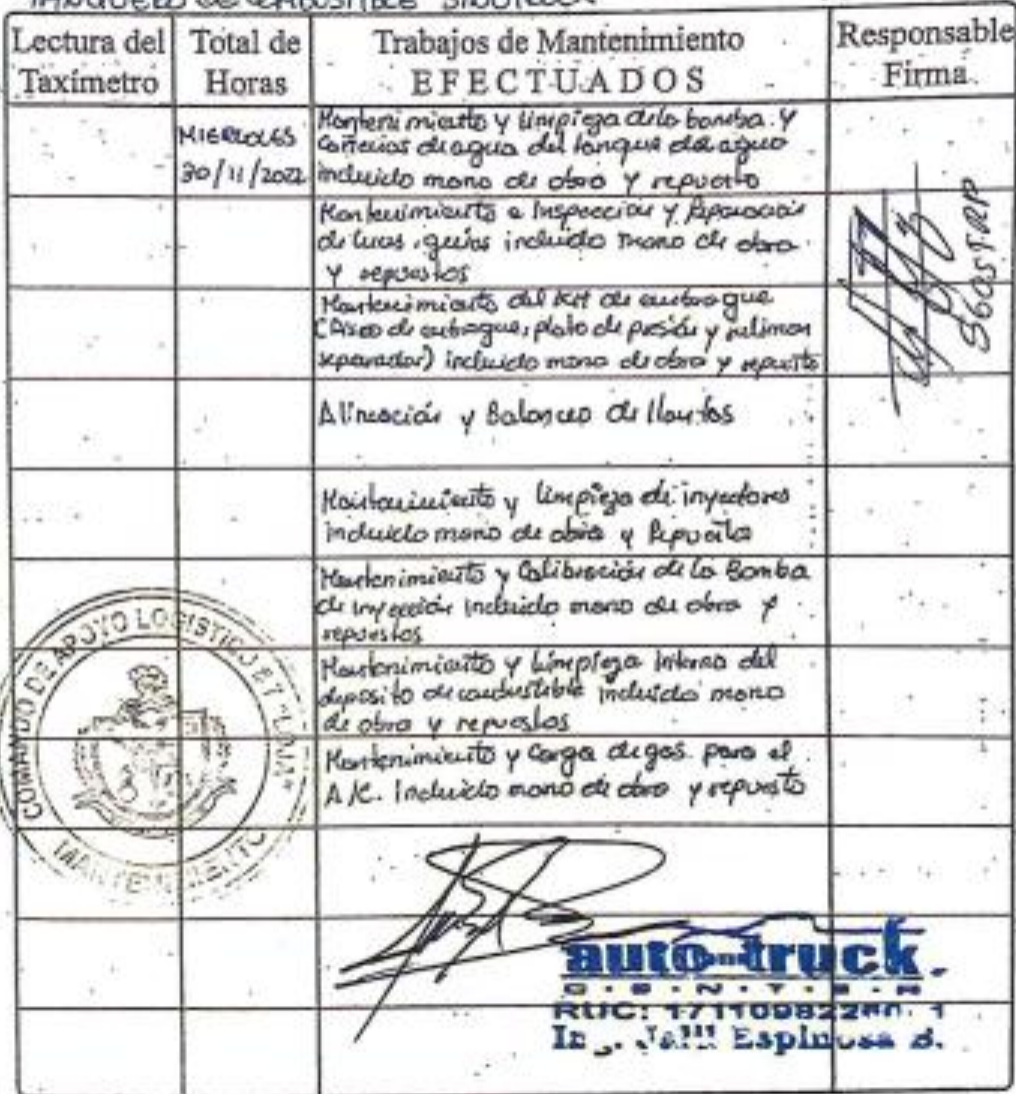 TANQUERO DE COMBUSTIBLE SINOTRUCK
Lectura del Taxímetro
Total de Horas
Trabajos de Mantenimiento EFECTUADOS
Responsable Firma
MIERCOLES
30/11/2022
Mantenimiento y limpieza de la bomba y
cañerias de agua del tanque de agua
incluido mano de obra y repuesto
Mantenimiento e Inspeccion y Reparación
de luces guias incluido mano de obra
y repuestos
Mantenimiento del kit de embrague
(Disco de embrague, plato de presión y
separador) incluido mano de obra y repuesto
Alineación y Balanceo de llantas
Mantenimiento y limpieza de inyectores
incluido mano de obra y Repuesto
Mantenimiento y Calibración de la Bomba
de inyección incluido mano de obra y
repuestos
Mantenimiento y Limpieza interna del
deposito de combustible incluido mano
de obra y repuestos
Mantenimiento y Carga de gas para el
A/C. Incluido mano de obra y repuesto
SGOS
COMANDO DE APOYO LOGISTICO
MANTENIMIENTO
auto-truck
CENTER
RUC:
Espinosa B.